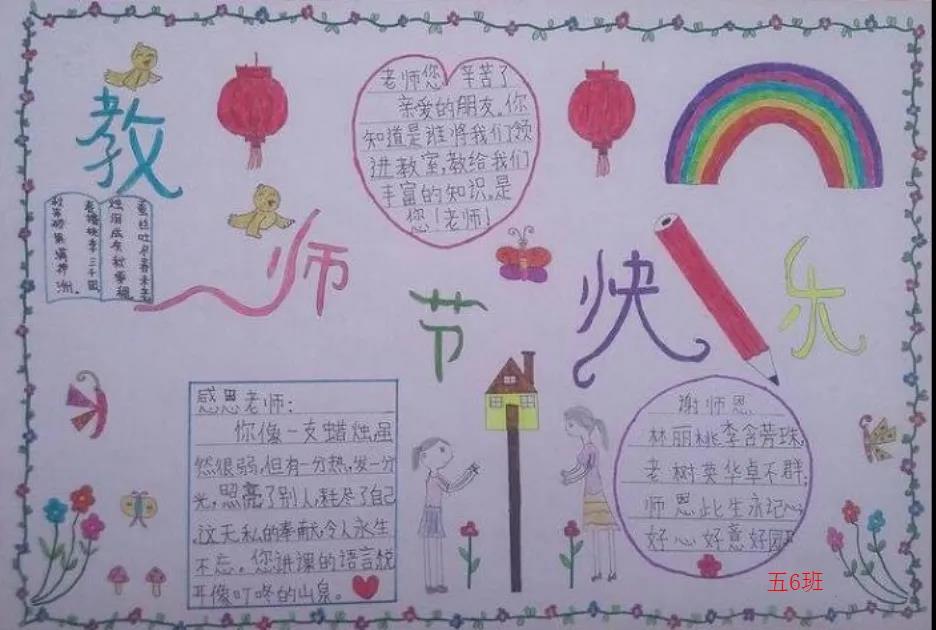 教师节快乐
老师您 辛苦了
亲爱的朋友。你
知道是谁将我们领
进教室,教给我们
丰富的知识。是
您!老师!
春蚕吐
烛泪成灰秋
桃李三千圃
感恩老师:
你像一支蜡烛,虽
然很弱,但有一分热,发一分
光,照亮了别人,耗尽了自己
这无私的奉献,令人永生
不忘。您讲课的语言,悦
耳像叮咚的山泉。
谢师恩
林丽桃李含芳珠,
老树英华卓不群;
师恩此生永记心
好心好意好园
五6班